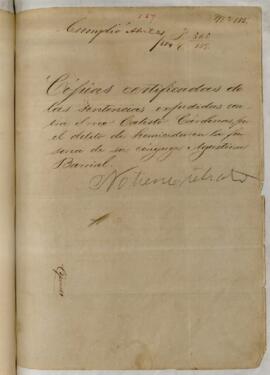 157
Cumplió
Copias certificadas de
las sentencias expedidas con-
tra el reo Calisto Cárdenas, por
el delito de homicidio en la per
sona de su cónyuge Agustina
Barrial.
No tiene retrato